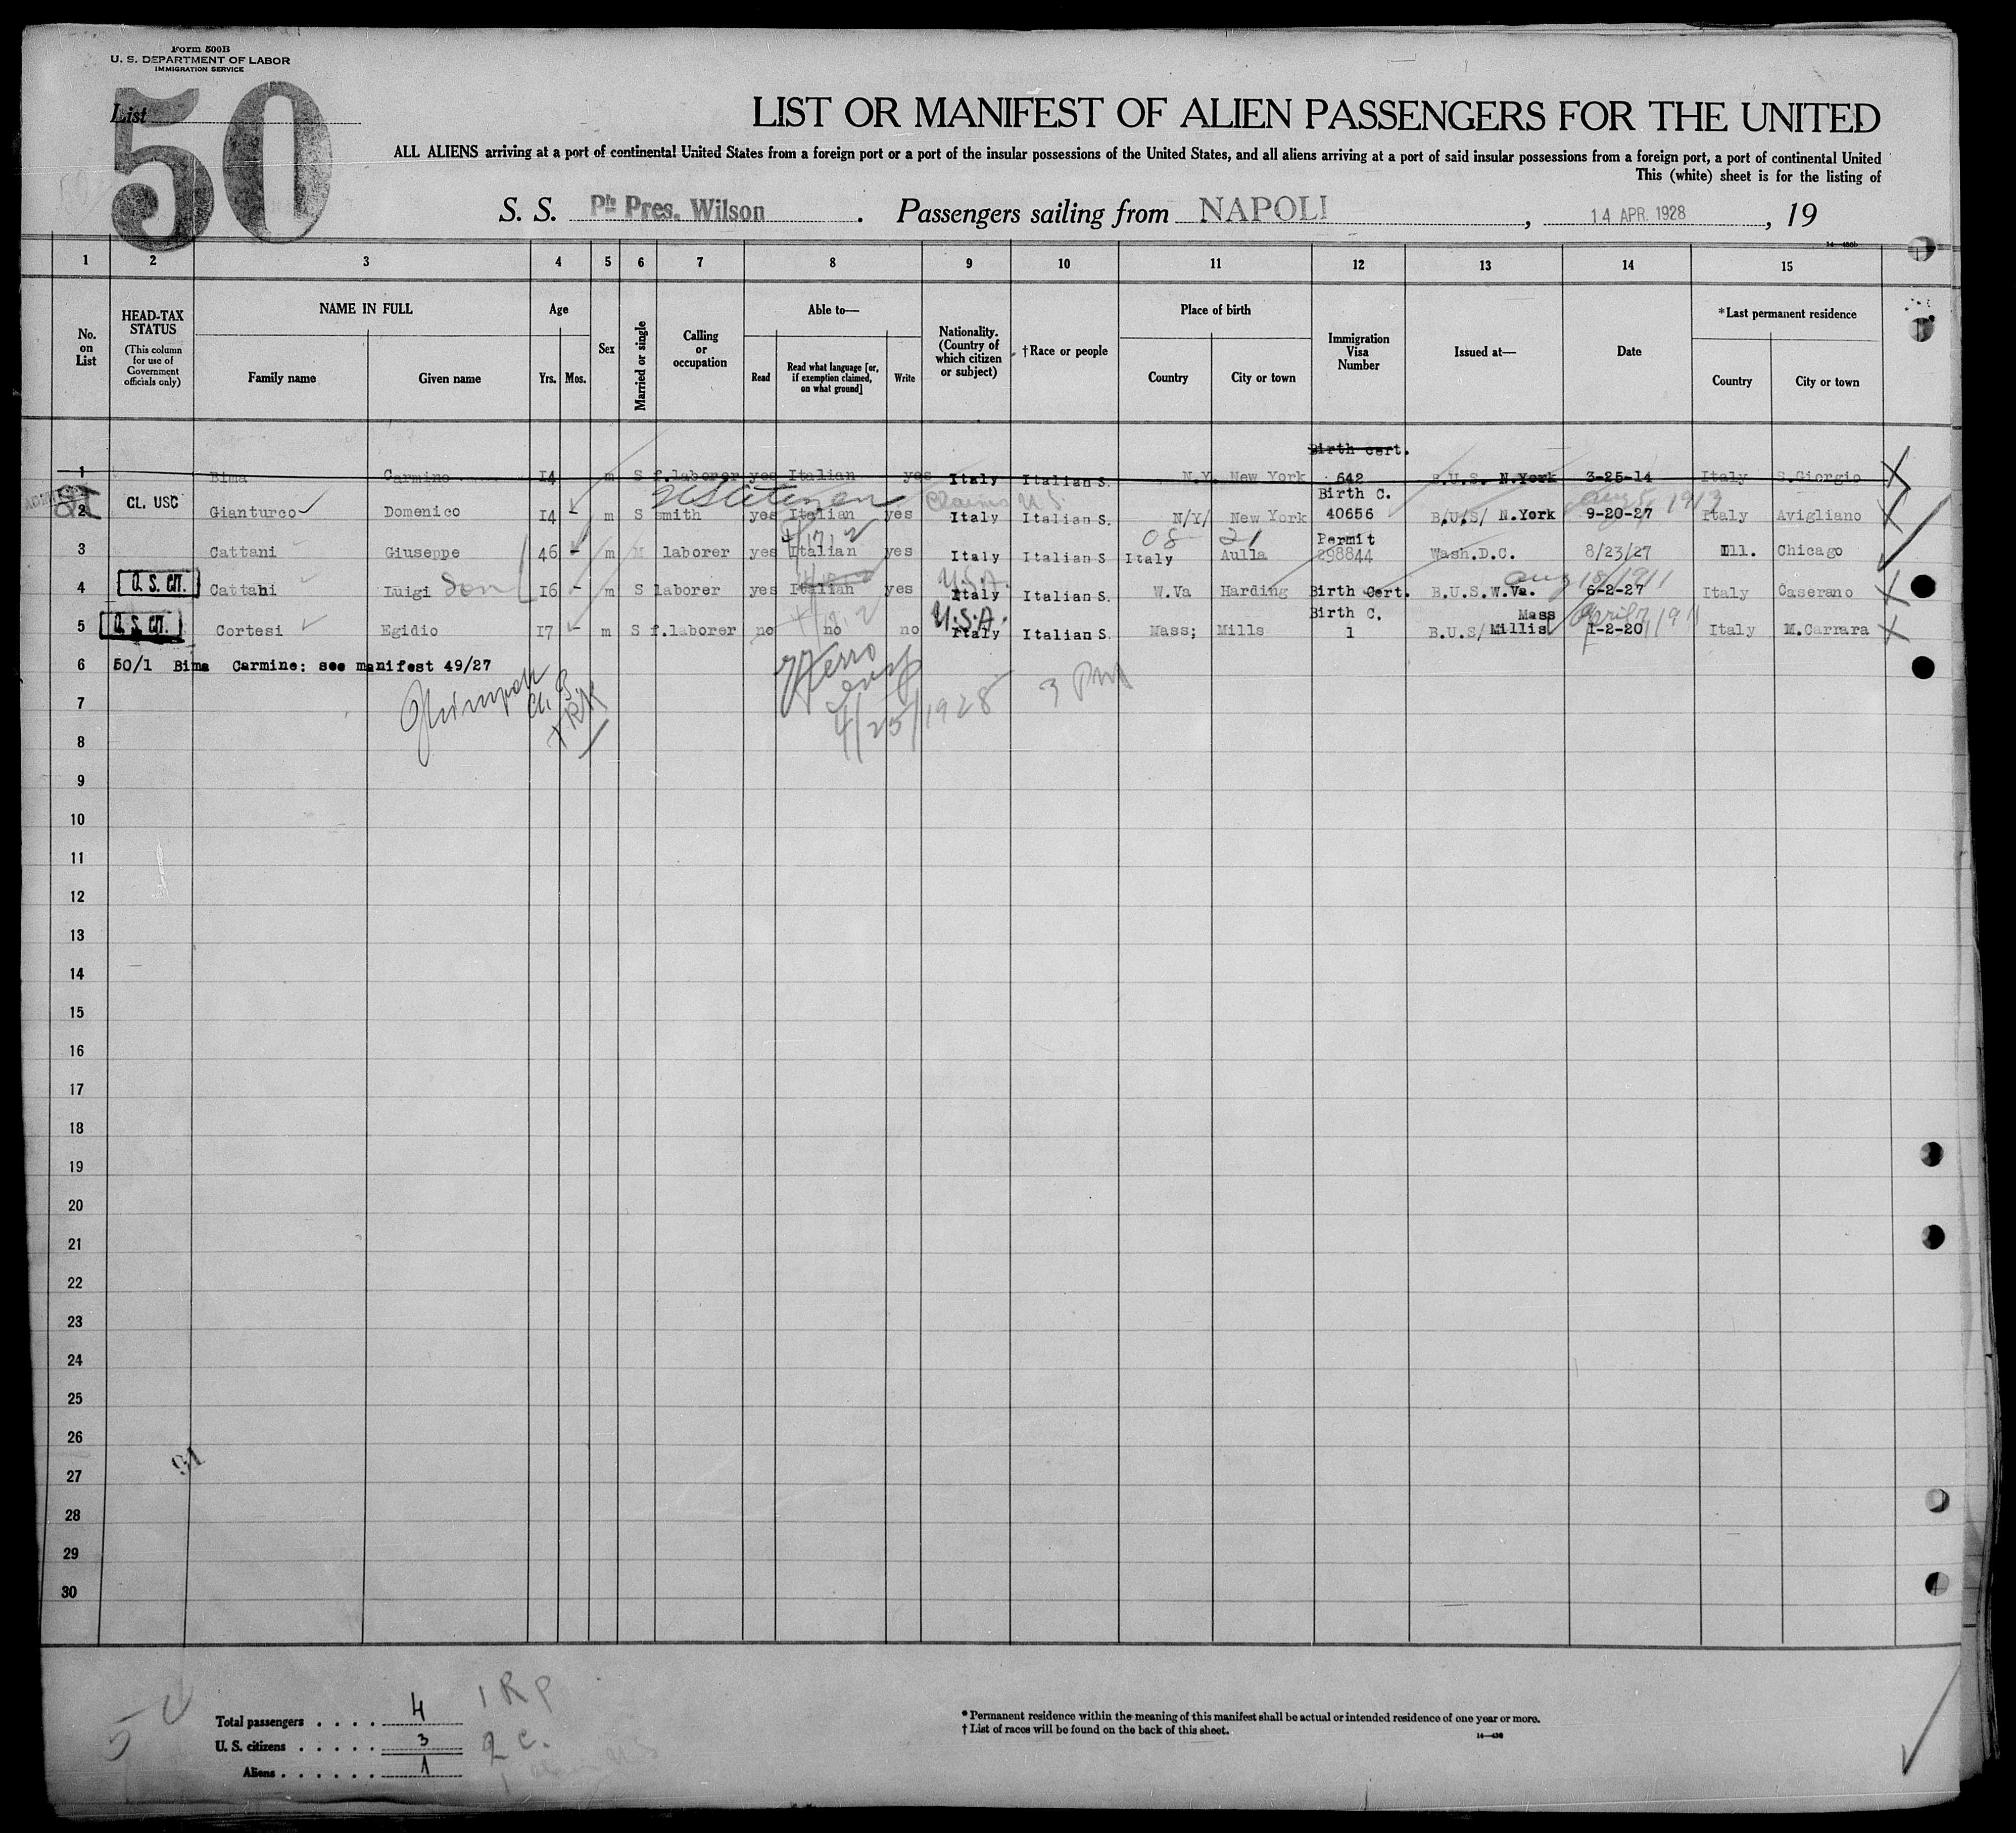 Form 500B
U. S. DEPARTMENT OF LABOR
IMMIGRATION SERVICE
List
50
LIST OR MANIFEST OF ALIEN PASSENGERS FOR THE UNITED
ALL ALIENS arriving at a port of continental United States from a foreign port or a port of the insular possessions of the United States, and all aliens arriving at a port of said insular possessions from a foreign port, a port of continental United
This (white) sheet is for the listing of
S. S. Pts Pres. Wilson . Passengers sailing from NAPOLI , 14 APR. 1928 , 19
1 2 3 4 5 6 7 8 9 10 11 12 13 14 15
No. on List
HEAD-TAX STATUS
(This column for use of Government officials only)
NAME IN FULL
Family name
Given name
Age
Yrs.
Mos.
Sex
Married or single
Calling or occupation
Able to—
Read
Read what language [or, if exemption claimed, on what ground]
Write
Nationality. (Country of which citizen or subject)
†Race or people
Place of birth
Country
City or town
Immigration Visa Number
Issued at—
Date
*Last permanent residence
Country
City or town
Birth cert.
1 Bima Carmine 14 m S f.laborer yes Italian yes Italy Italian S. N.Y. New York 642 B.U.S. N.York 3-25-14 Italy S.Giorgio
US Citizen Claims U.S. Birth C. Aug 5, 1913
2 CL. USC Gianturco Domenico 14 - m S smith yes Italian yes Italy Italian S. N/Y/ New York 40656 B.U.S/ N.York 9-20-27 Italy Avigliano
08 21 Permit
3 Cattani Giuseppe 46 - m M laborer yes Italian yes Italy Italian S Italy Aulla 298844 Wash.D.C. 8/23/27 Ill. Chicago
U.S.A. Aug 18/1911
4 U. S. CIT. Cattani Luigi Son 16 - m S laborer yes Italian yes Italy Italian S. W.Va Harding Birth Cert. B.U.S.W.Va. 6-2-27 Italy Caserano
U.S.A. Birth C. Mass
5 U. S. CIT. Cortesi Egidio 17 - m S f.laborer no no no Italy Italian S. Mass; Mills 1 B.U.S/ Millis 1-2-20 Italy M.Carrara
6 50/1 Bima Carmine: see manifest 49/27
7
4/25/1928 3 PM
8
9
10
11
12
13
14
15
16
17
18
19
20
21
22
23
24
25
26
27
28
29
30
Total passengers . . . . 4 1 RP
U. S. citizens . . . . . 3 2 C.
Aliens . . . . . . 1
5
* Permanent residence within the meaning of this manifest shall be actual or intended residence of one year or more.
† List of races will be found on the back of this sheet.